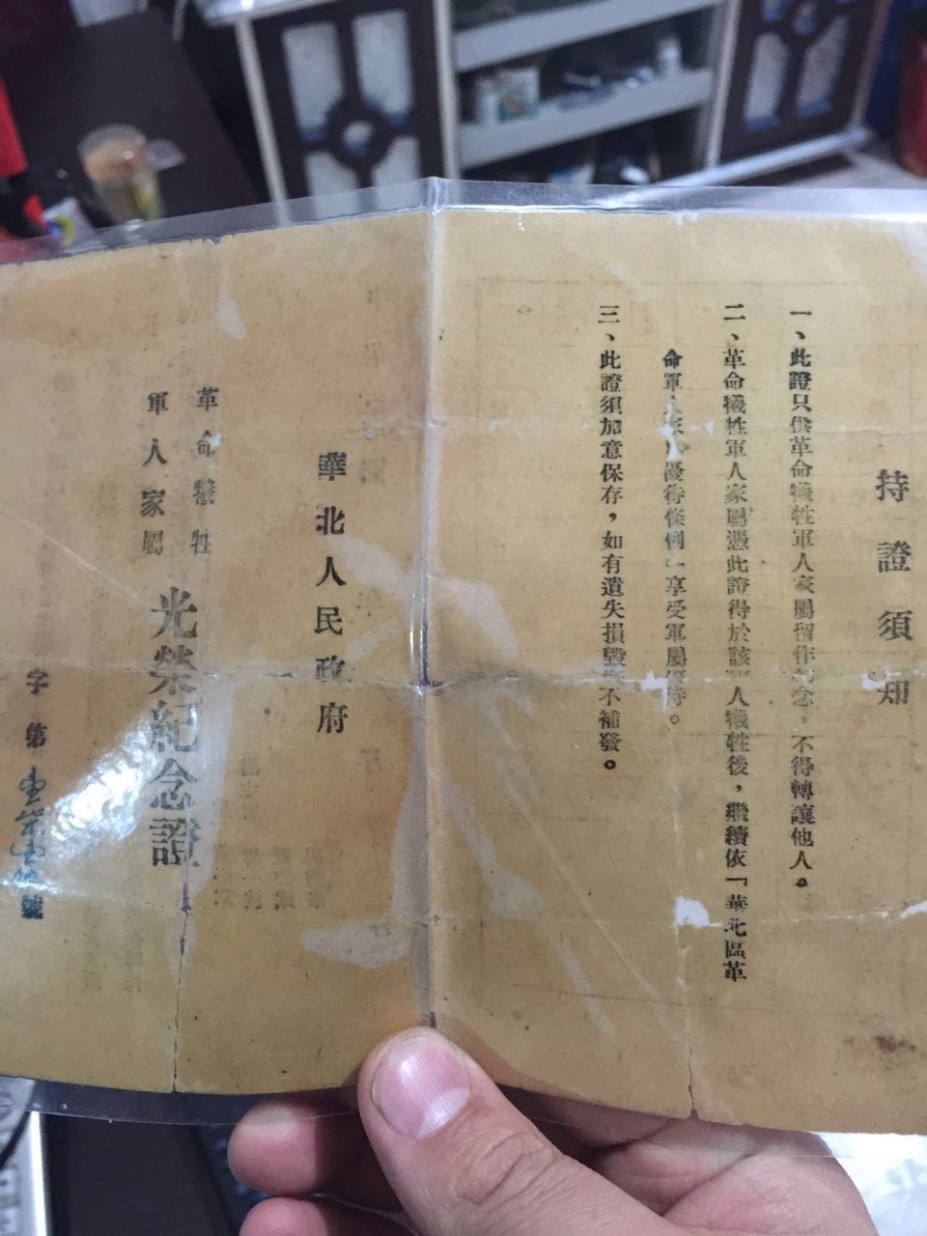 持證須知
一、此證只供革命犧牲軍人家屬留作紀念，不得轉讓他人。
二、革命犧牲軍人家屬憑此證得於該軍人犧牲後，繼續依「華北區革
命軍人家屬優待條例」享受軍屬優待。
三、此證須加意保存，如有遺失損毀不補發。
華北人民政府
革命犧牲
軍人家屬
光榮紀念證
字第 號